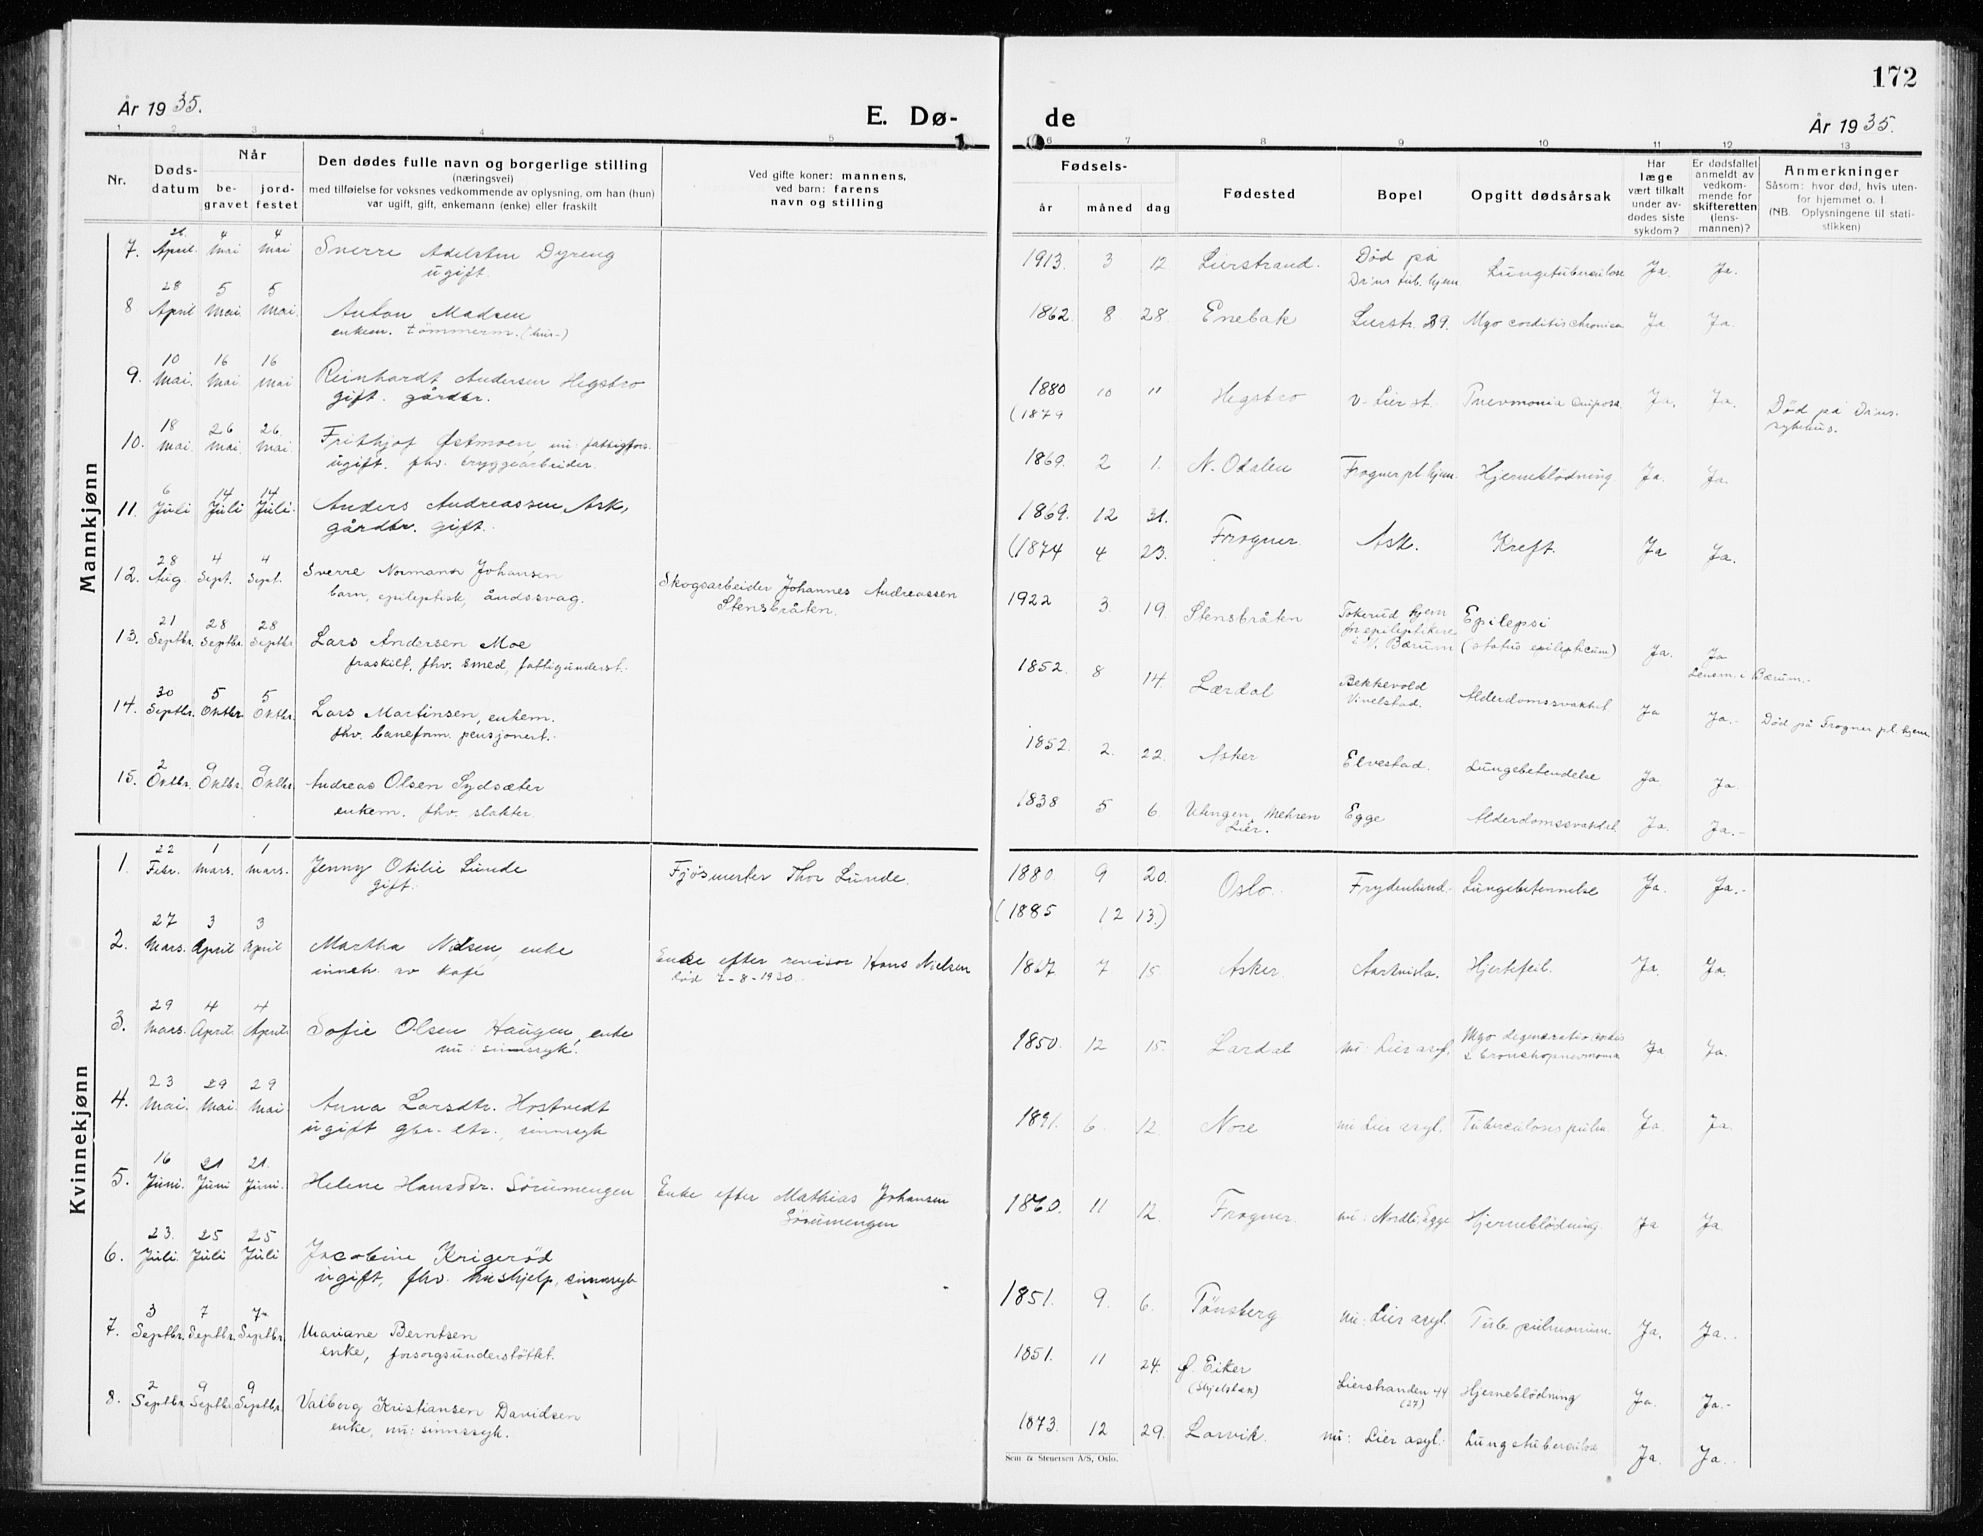 172
År 1935.
E. Dø-
de
År 1935.
1 2 3 4 5 6 7 8 9 10 11 12 13
Nr.
Døds-
datum
Når
be-
gravet
jord-
festet
Den dødes fulle navn og borgerlige stilling
(næringsvei)
med tilføielse for voksnes vedkommende av oplysning, om han (hun)
var ugift, gift, enkemann (enke) eller fraskilt
Ved gifte koner: mannens,
ved barn: farens
navn og stilling
Fødsels-
år måned dag
Fødested
Bopel
Opgitt dødsårsak
Har
læge
vært tilkalt
under av-
dødes siste
sykdom?
Er dødsfallet
anmeldt av
vedkom-
mende for
skifteretten
(lens-
mannen)?
Anmerkninger
Såsom: hvor død, hvis uten-
for hjemmet o. l
(NB. Oplysningene til stati-
stikken)
Mannkjønn
7. 21 April. 4 Mai 4 Mai Sverre Adelsten Dyreng 1913. 3 12 Lierstrand. Død på Lungetuberculose Ja Ja.
ugift. Dr.'ns tub. hjem
8 28 April 5 Mai. 5 Mai. Anton Madsen 1862. 8. 28. Enebak Lierstr. 39. Myo corditis chronica Ja Ja.
enkem. tömmerm. (hus-)
9. 10 Mai. 16 Mai. 16 Mai Reinhardt Andersen Hegsbro 1880 10 11 Hegsbro v. Lier st. Pnevmonia Ja. Ja. Død på Dr.'ns.
gift. gårdbr. (1879 sykehus.
10. 18 Mai 26 Mai. 26. Mai. Frithjof Østmoen, nu: fattigfors. 1869. 2 1. N. Odalen Frogner pl. hjem. Hjerneblödning Ja. Ja.
ugift. fhv. bryggearbeider.
11. 6 Juli 14 Juli 14 Juli. Anders Andreassen Ask, 1869. 12 31. Frogner Ask. Kreft. Ja Ja.
gårdbr. gift. (1874 4 23.
12. 28 Aug. 4 Sept. 4 Sept. Sverre Normann Johansen Skogsarbeider Johannes Andreassen 1922 3. 19. Stensbråten Tokerud hjem Epilepsi Ja. Ja
barn, epileptisk, åndssvag. Stensbråten. for epileptikere (status epilepticum)
i V. Bærum Lensm. i Bærum.
13. 21 Septbr. 28 Septbr. 28 Septbr Lars Andersen Moe 1852. 8 14. Lærdal Bekkevold Alderdomssvakhet Ja Ja.- Død på Frogner pl. hjem
fraskilt, fhv. smed, fattigunderst. Vivelstad.
14. 30 Septbr. 5 Oktbr. 5 Oktbr. Lars Martinsen, enkem. 1852. 2. 22. Asker Elvestad. Lungebetendelse Ja. Ja.
fhv. baneform. pensjonert.
15. 2 Oktbr. 9 Oktbr. 9 Oktbr Andreas Olsen Sydsæter 1838 5 6. Utengen, Mehren Egge Alderdomssvakhet Ja. Ja.-
enkem. fhv. slakter. Lier.
Kvinnekjønn
1. 22 Febr. 1 Mars. 1 Mars. Jenny Otilie Lunde Fjösmester Thor Lunde. 1880. 9 20. Oslo. Frydenlund. Lungebetennelse Ja. Ja.-
gift. (1885 12 13.)
2. 27 Mars. 3 April 3 April Martha Nilsen, enke Enke efter revisor Hans Nielsen 1867 7 15. Asker. Hjertefeil. Ja. Ja.
inneh. av kafé død 7-8-1930.
3. 29 Mars. 4 April. 4 April. Sofie Olsen Haugen, enke 1850. 12 15. Lardal nu: Lier asyl. Myo degeneratio cordis Ja Ja.
nu: sinnssyk. & bronchopnevmonia
4. 23 Mai. 29 Mai. 29 Mai Anna Larsdtr. Hostvedt 1891. 6. 12. Nore nu Lier asyl. Tuberculosis pulm. Ja. Ja.
ugift gbr. dtr., sinnssyk
5. 16 Juni. 21 Juni 21. Juni. Helene Hansdtr. Sörumengen Enke efter Mathias Johansen 1860. 11 12. Frogner nu: Nordli, Egge Hjerneblödning. Ja Ja
Sörumengen
6. 23. Juli. 25 Juli 25 Juli Jacobine Krigeröd 1851. 9. 6. Tönsberg nu: Lier asyl. Tub. pulmonum. Ja. Ja..
ugift, fhv. hushjelp, sinnssyk
7. 3 Septbr. 7 Septbr. 7 Septbr. Mariane Berntsen 1851. 11 24. ø. Eiker Lierstranden 44 Hjerneblödning Ja. Ja.-
enke, forsorgsunderstöttet. (Skjelsbæk) (27)
8. 2 Septbr 9 Septbr 9 Septbr. Valborg Kristiansen Davidsen 1873. 12 29. Larvik. nu: Lier asyl. Lungetuberculose Ja. Ja.
enke, nu: sinnssyk.
Sem & Stenersen A/S, Oslo.